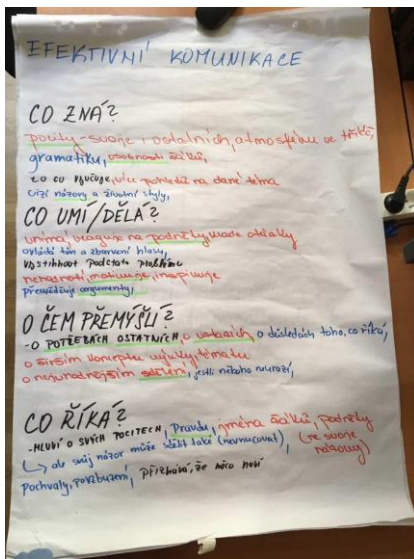 EFEKTIVNÍ KOMUNIKACE
CO ZNÁ?
pocity - svoje i ostatních, atmosféru ve třídě,
gramatiku, osobnosti žáků,
to co vyučuje, více pohledů na dané téma
cizí názory a životní styly,
CO UMÍ/DĚLÁ?
vnímá, reaguje na podněty, klade otázky
ovládá tón a zbarvení hlasu,
vystihnout podstatu problému
neradí, motivuje, inspiruje
přesvědčuje argumenty,
O ČEM PŘEMÝŠLÍ?
- O POTŘEBÁCH OSTATNÍCH, o vztazích, o důsledcích toho, co říká,
o širším konceptu výuky, tématu
o nejvhodnějším sdělení, jestli někoho neurazí,
CO ŘÍKÁ?
- MLUVÍ O SVÝCH POCITECH, Pravdu, jména žáků, podněty
↳ ale svůj názor může sdělit také (nevnucovat), (ne svoje názory)
Pochvaly, povzbuzení, přiznání, že něco neví